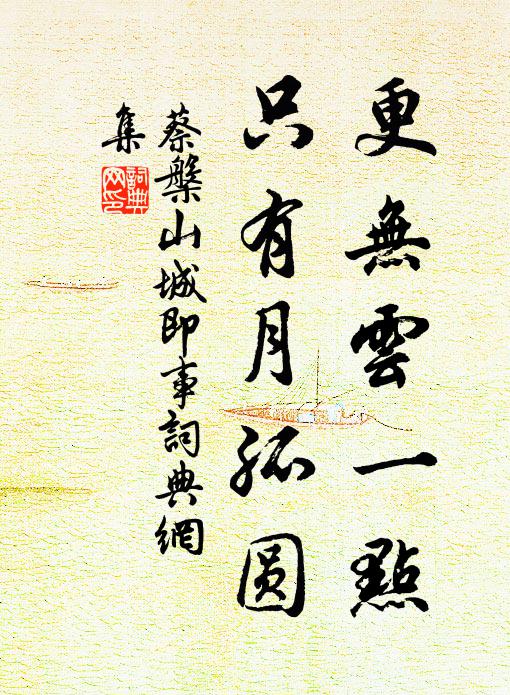 更無雲一點
只有月孤圆
蔡槃山城即事詞典網
集
詞典
网印